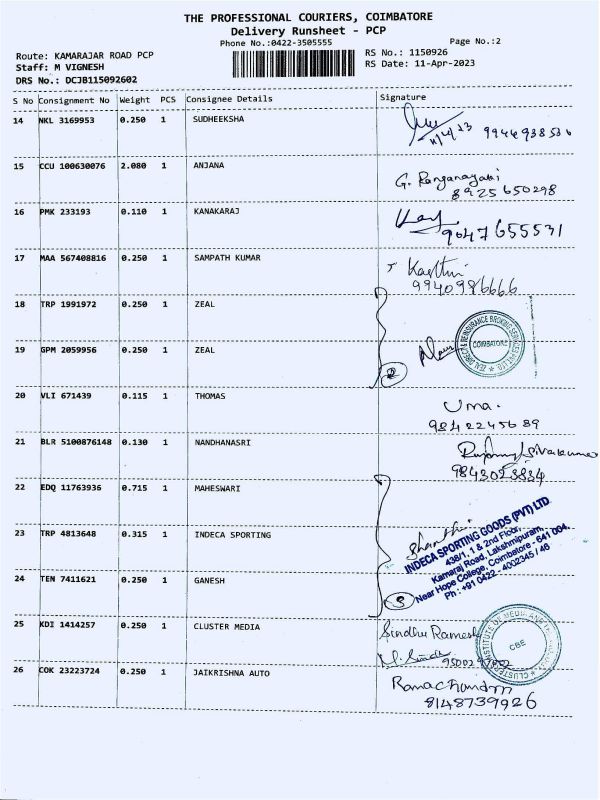 THE PROFESSIONAL COURIERS, COIMBATORE
Delivery Runsheet - PCP
Phone No.:0422-3505555
Page No.:2
Route: KAMARAJAR ROAD PCP
RS No.: 1150926
Staff: M VIGNESH
RS Date: 11-Apr-2023
DRS No.: DCJB115092602
S No Consignment No Weight PCS Consignee Details Signature
14 NKL 3169953 0.250 1 SUDHEEKSHA
11/4/23 9944938536
15 CCU 100630076 2.080 1 ANJANA
G. Ranganayaki
8925650298
16 PMK 233193 0.110 1 KANAKARAJ
9047655531
17 MAA 567408816 0.250 1 SAMPATH KUMAR
Karthi
9940986666
18 TRP 1991972 0.250 1 ZEAL
ZEAL DIRECT & REINSURANCE BROKING SERVICES PVT LTD
COIMBATORE
19 GPM 2059956 0.250 1 ZEAL
2
20 VLI 671439 0.115 1 THOMAS
Uma.
9842245689
21 BLR 5100876148 0.130 1 NANDHANASRI
9843023834
22 EDQ 11763936 0.715 1 MAHESWARI
23 TRP 4813648 0.315 1 INDECA SPORTING
Shanthi
INDECA SPORTING GOODS (PVT) LTD
438/1, 1 & 2nd Floor,
Kamaraj Road, Lakshmipuram,
Near Hope College, Coimbatore - 641 004.
Ph : +91 0422 - 4002345 / 46
24 TEN 7411621 0.250 1 GANESH
3
25 KDI 1414257 0.250 1 CLUSTER MEDIA
Sindhu Ramesh
CLUSTER INSTITUTE OF MEDIA AND
CBE
26 COK 23223724 0.250 1 JAIKRISHNA AUTO
Ramachandran
8148739926